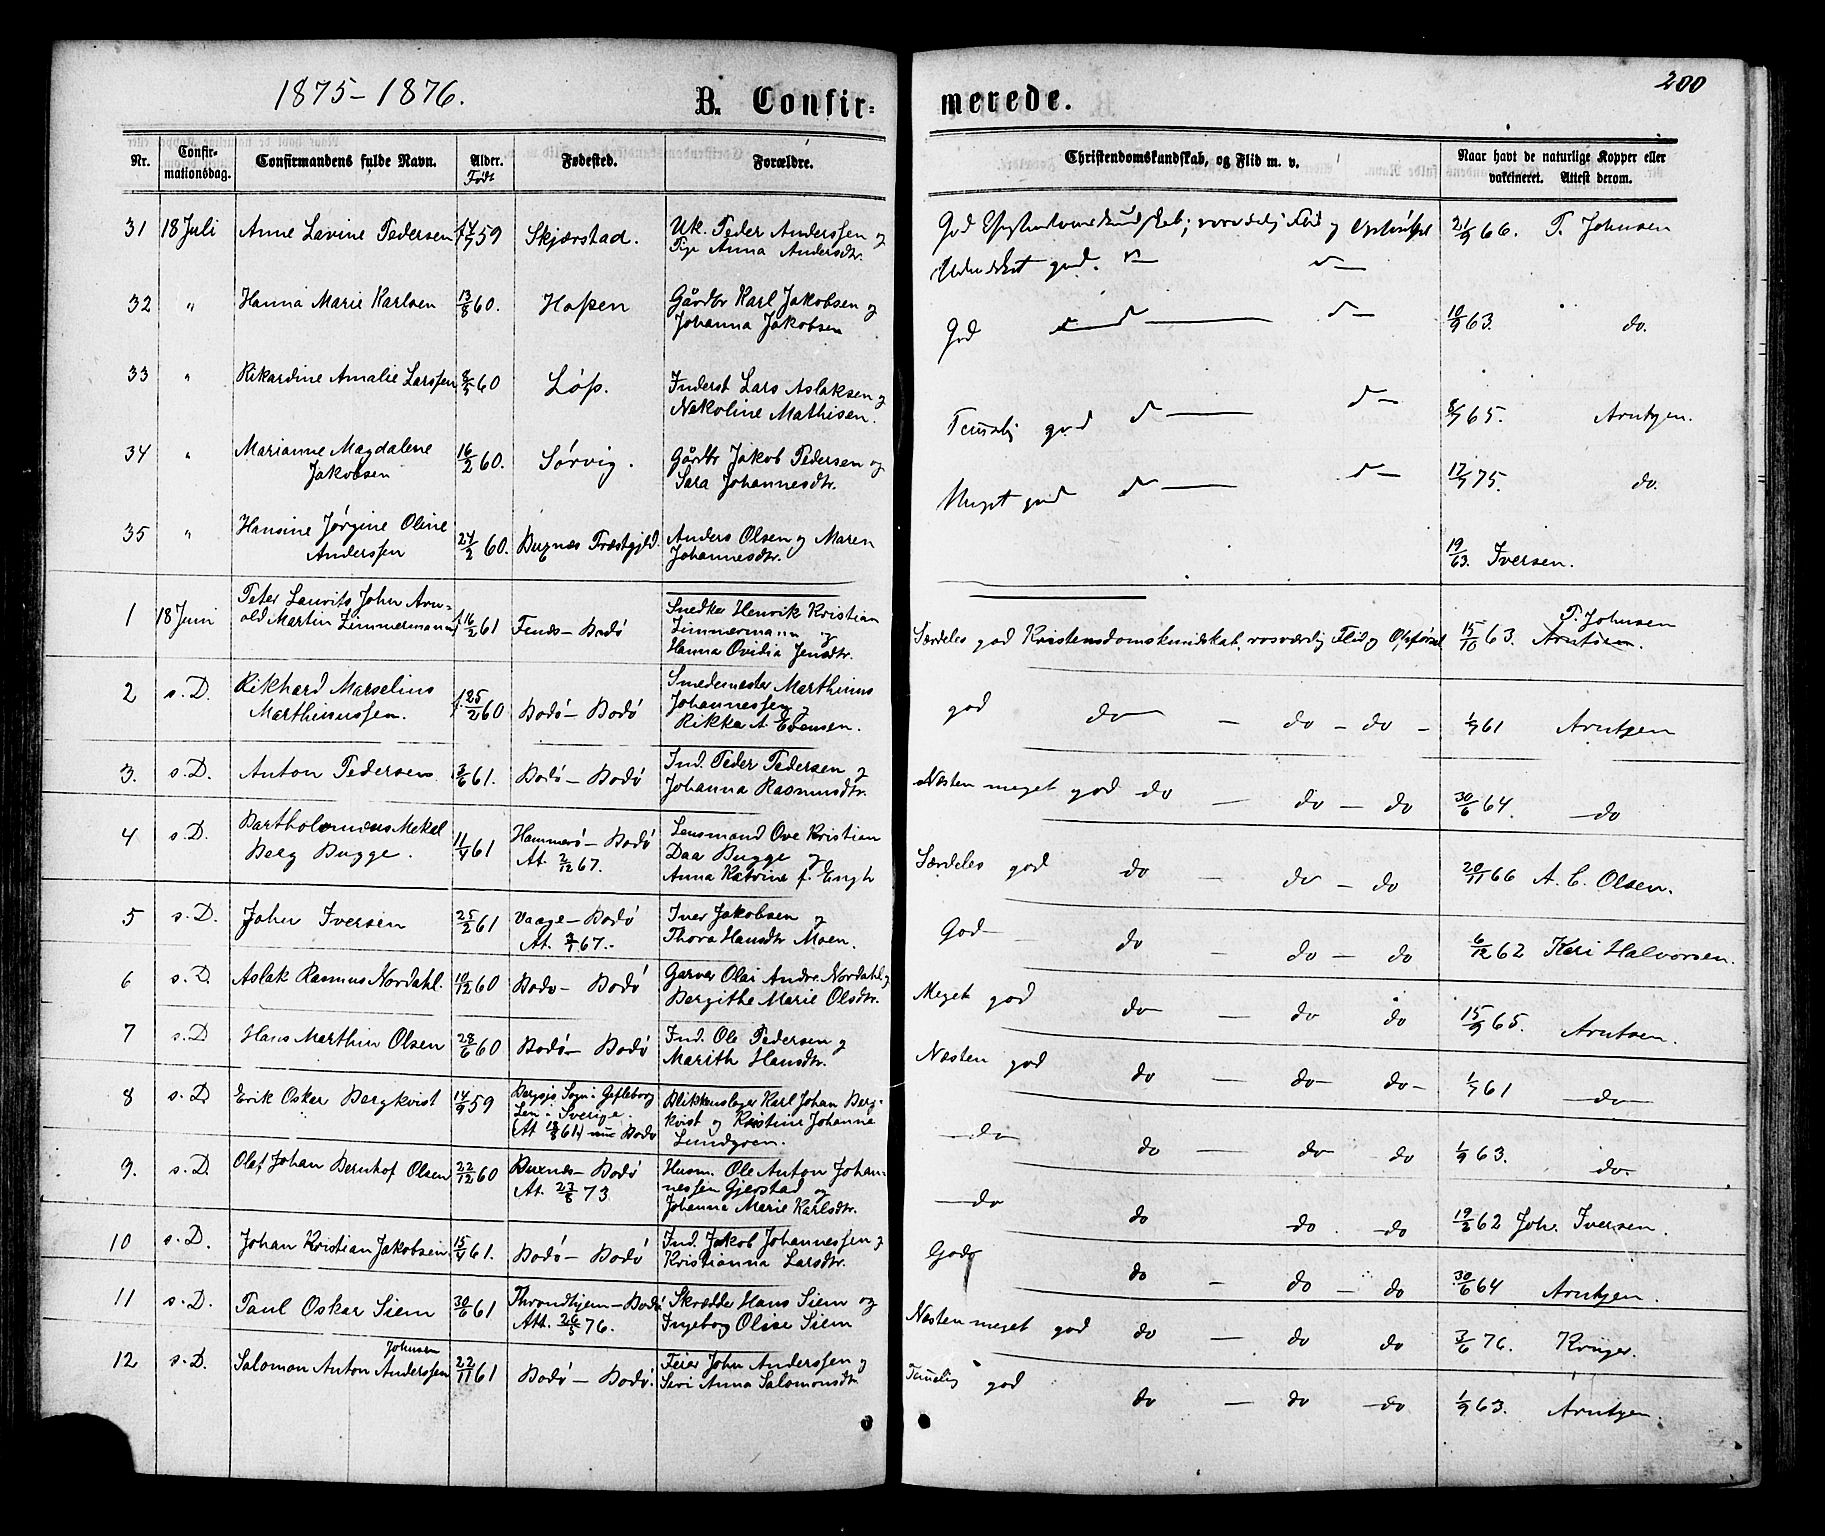 1875-1876.
200
B. Confir-
merede.
Nr.
Confir-
mationsdag.
Confirmandens fulde Navn.
Alder.
Født
Fødested.
Forældre.
Christendomskundskab, og Flid m. v.
Naar havt de naturlige Kopper eller
vakcineret. Attest derom.
31 18 Juli Anne Lavine Pedersen 59 Skjærstad. Uk. Peder Anderssen og
Pige Anna Andersdtr. God 21/9 66. P. Johnsen
Udmærket god.
32 " Hanna Marie Karlsen 13/8 60. Hopen Gårdbr Karl Jakobsen og
Johanna Jakobsen God 10/9 63. do.
33 " Rikardine Amalie Larssen 8/5 60 Løp. Inderst Lars Aslaksen og
Nekoline Mathisen. Temelig god 65. Arntzen.
34 " Marianne Magdalene
Jakobsen 16/2 60. Sørvig. Gårdbr Jakob Pedersen og
Sara Johannesdtr. Meget god 17/7 75. do.
35 " Hansine Jørgine Oline
Anderssen 24/2 60. Buxnæs Præstgjld. Anders Olsen og Maren
Johannesdtr. 19/ 63. Iversen.
1 18 Juni Peter Laurits John Arn-
old Martin Zimmermann f. 16/2 61 Fenes - Bodø Snedker Henrik Kristian
Zimmermann og
Hanna Ovidia Jensdtr. Særdeles god Kristendomskundskab, rosværdig Flid og Opførsel 15/10 63. P. Johnsen
Arntsen.
2 s. D. Rikhard Marselius
Marthinussen. f. 25/2 60 Bodø - Bodø Smedemester Marthinus
Johannessen og
Rikka A. Evensen. god do - do - do - 1/7 61 Arntzen
3. s. D. Anton Pedersen 3/6 61. Bodø - Bodø Ind. Peder Pedersen og
Johanna Rasmusdtr. Næsten meget god do - do - do 30/6 64. do
4 s. D. Bartholomæus Mekal
Berg Bugge. 11/4 61 Hammerø - Bodø
At. 2/12 67. Lensmand Ove Kristian
Daa Bugge og
Anna Katrine f. Engh Særdeles god do - do - do 20/11 66 A. C. Olsen.
5 s. D. John Iversen 25/2 61 Vaage - Bodø
At. 67. Iver Jakobsen og
Thora Hansdtr Moen. God do - do - do 6/12 62 Kari Halvorsen.
6 s. D. Aslak Rasmus Nordahl. 10/12 60 Bodø - Bodø Garver Olai Andr. Nordahl og
Bergithe Marie Olsdtr. Meget god do - do do 15/9 65. Arntsen.
7 s. D Hans Marthin Olsen 28/6 60 Bodø - Bodø Ind. Ole Pedersen og
Marith Hansdtr. Næsten god do - do - do - 1/7 61 do
8 s. D Erik Oskar Bergkvist 14/9 59 Bergsjø Sogn i Gefleborg
Len i Sverige.
(At 18/8 61) nu Bodø Blikkenslager Karl Johan Berg-
kvist og Kristine Johanne
Lundgren. do do - do do 1/9 63. do.
9. s. D. Olaf Johan Bernhof Olsen 22/12 60 Buxnæs - Bodø
At. 27/8 73 Husm. Ole Anton Johan-
nessen Gjerstad og
Johanna Marie Karlsdtr. do do do - do 19/2 62 Joh. Iversen.
10 s. D. Johan Kristian Jakobsen 15/4 61. Bodø - Bodø Ind. Jakob Johannessen og
Kristianna Larsdtr. God do - do - do 30/6 64 Arntzen.
11 s. D. Paul Oskar Siem 30/6 61 Throndhjem - Bodø
Att. 26/5 76. Skrædder Hans Siem og
Ingeborg Olise Siem Næsten meget god do - do do 3/6 76. Krüger.
12 s. D. Salomon Anton Johnsen
Anderssen 22/11 61 Bodø - Bodø. Feier John Anderssen og
Siri Anna Salomonsdtr Temelig god do - do - do 1/9 63. Arntzen.